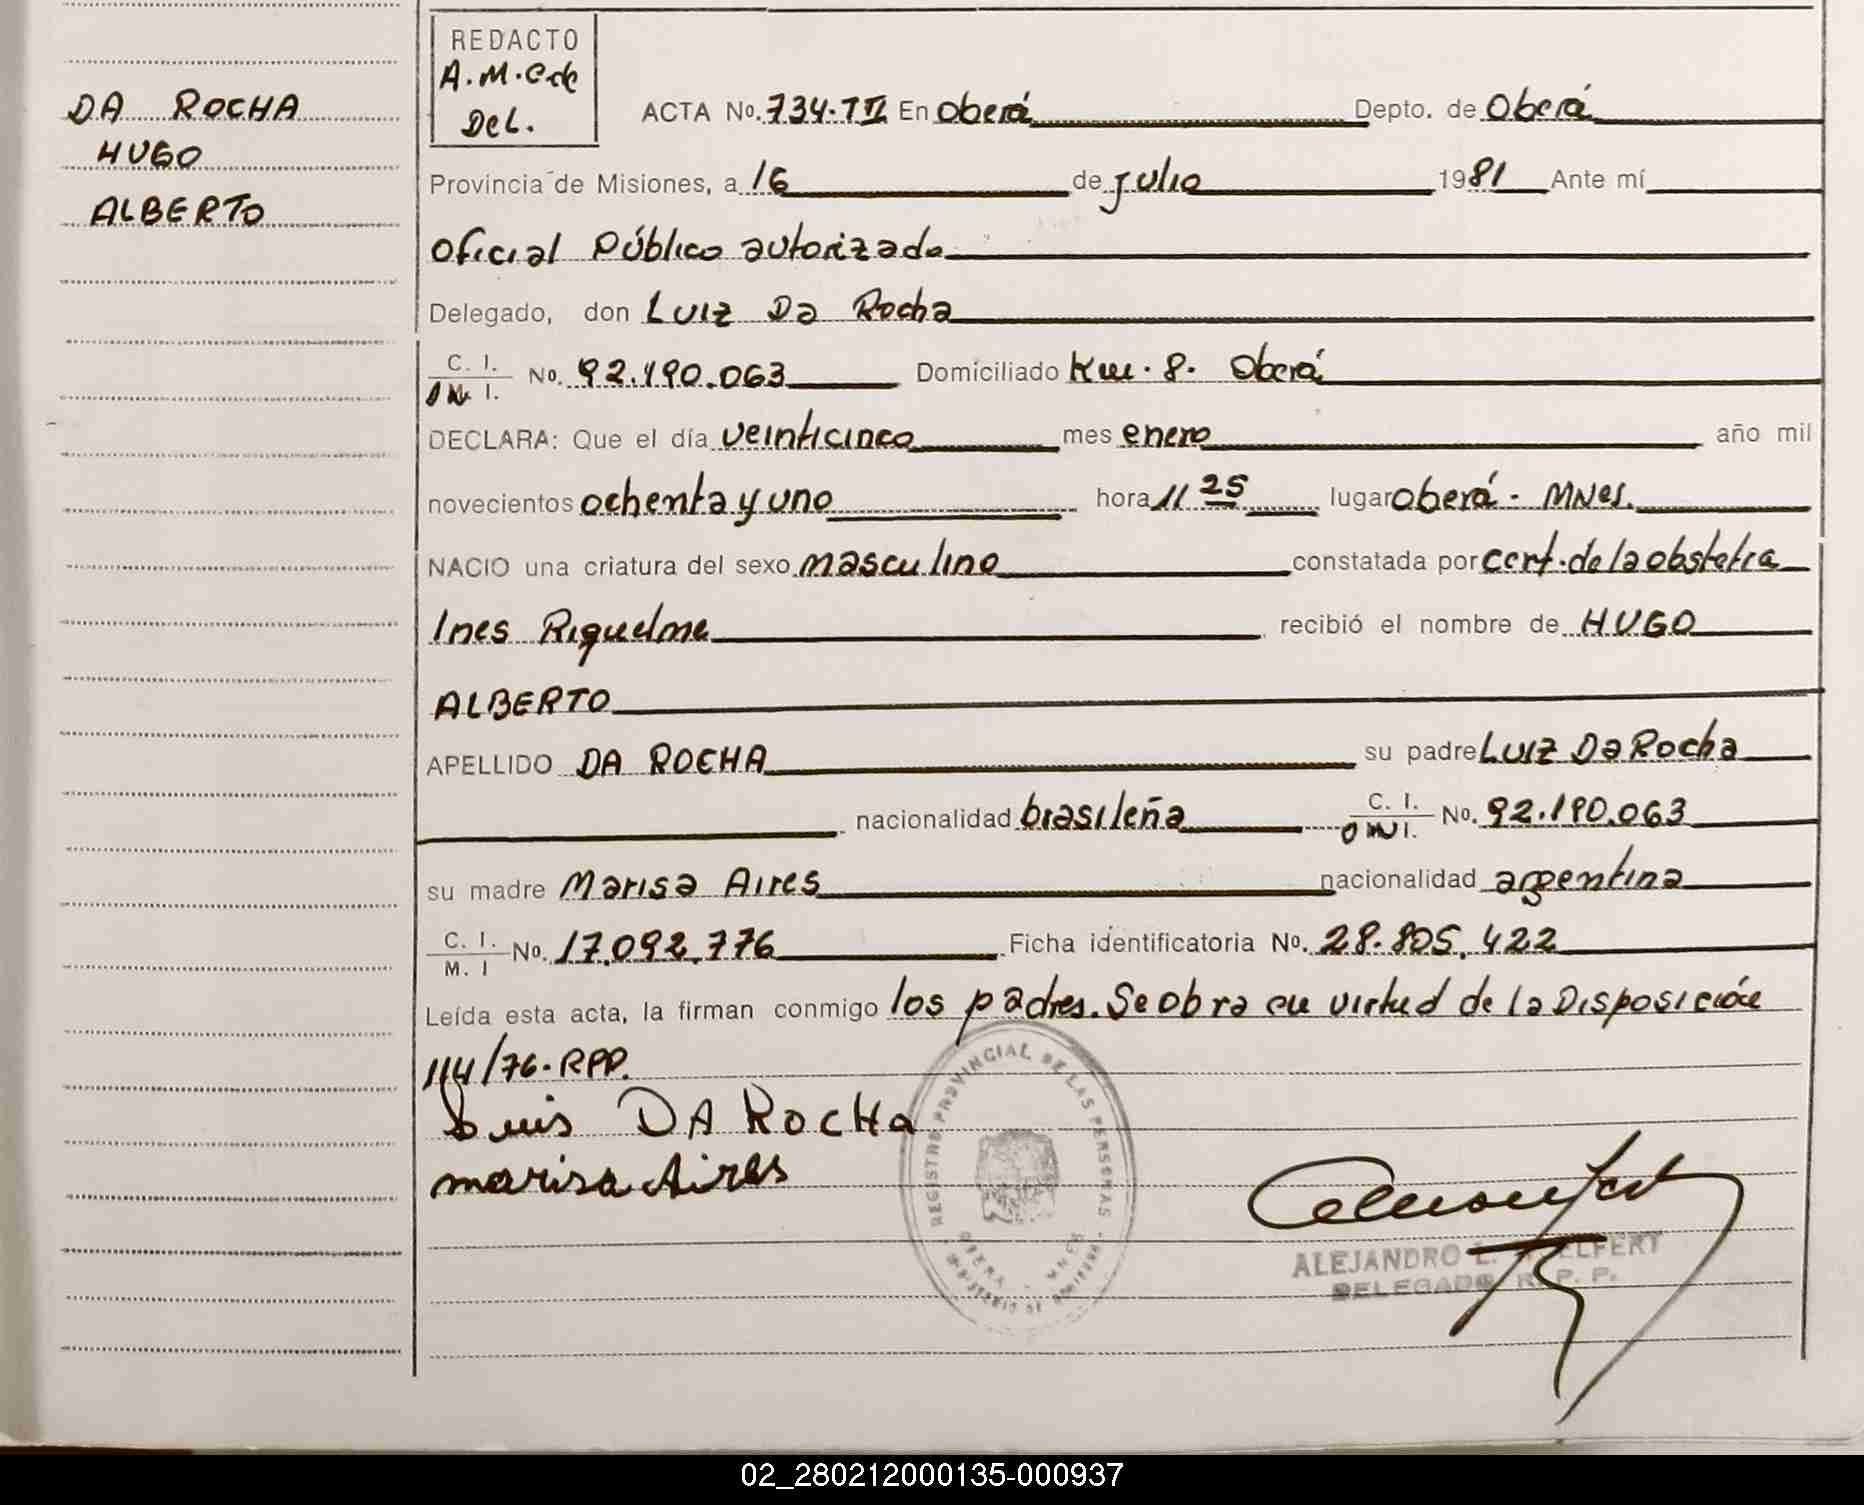 DA ROCHA
HUGO
ALBERTO
REDACTO
A.M.C de
Del.
ACTA No. 734-TII En Oberá Depto. de Oberá
Provincia de Misiones, a 16 de julio 1981 Ante mí
Oficial Público autorizado
Delegado, don Luiz Da Rocha
C. I.
D N I. No. 92.190.063 Domiciliado Km. 8. Oberá
DECLARA: Que el día veinticinco mes enero año mil
novecientos ochenta y uno hora 11 25 lugar Oberá - Mnes.
NACIO una criatura del sexo masculino constatada por cert. de la obstetra
Ines Riquelme recibió el nombre de HUGO
ALBERTO
APELLIDO DA ROCHA su padre Luiz Da Rocha
nacionalidad brasileña C. I.
D N I. No. 92.190.063
su madre Marisa Aires nacionalidad argentina
C. I.
M. I No. 17.092.776 Ficha identificatoria No. 28.805.422
Leída esta acta, la firman conmigo los padres. Se obra en virtud de la Disposición
114/76-RPP.
Luis DA ROCHa
marisa Aires
REGISTRO PROVINCIAL DE LAS PERSONAS
OBERA - MNES
MINISTERIO DE GOBIERNO
ALEJANDRO L. ELFERT
DELEGADO R. P. P.
02_280212000135-000937